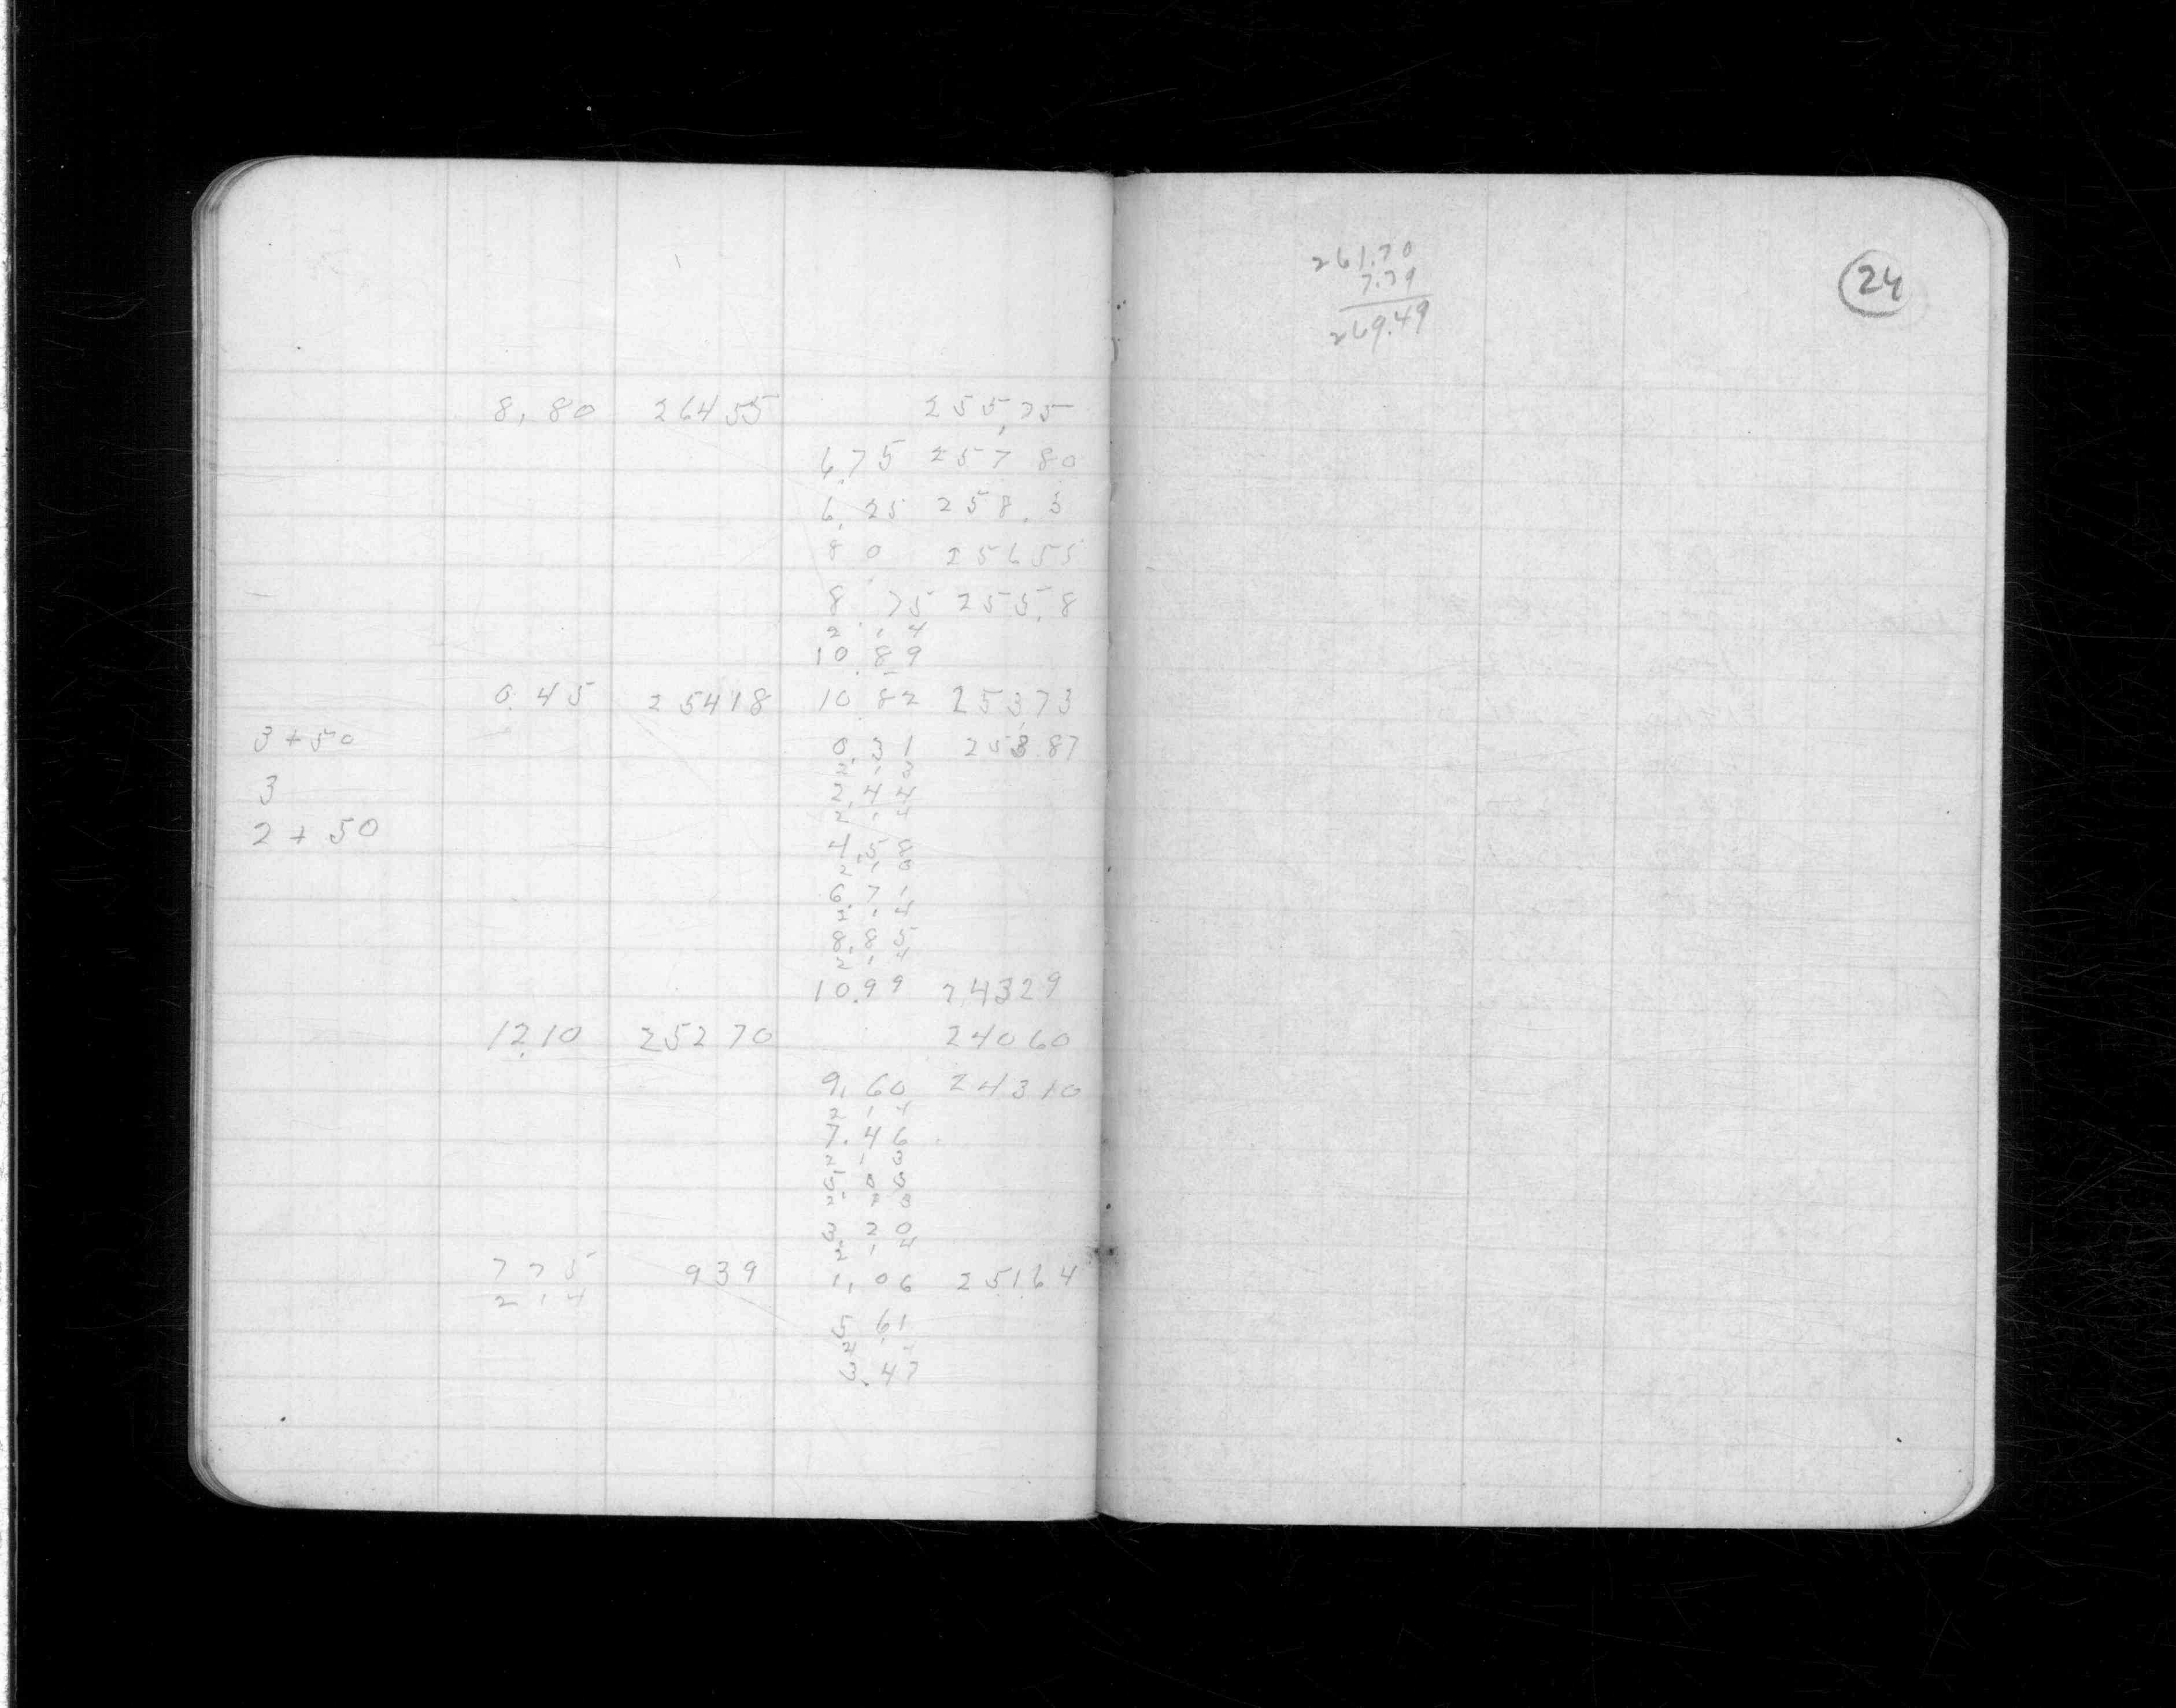 8.80 26455 255.75
6.75 257 80
6.25 258.3
8 0 25655
8.75 255.8
2.14
10.89
0.45 25418 10 82 25373
3+50 0.31 253.87
2.13
3 2.44
2.14
2+50 4.58
2.13
6.71
2.14
8.85
2.14
10.99 24329
12.10 25270 24060
9.60 24310
2.14
7.46
2 1 3
5.33
2.13
3 20
2.14
7 75 939 1.06 251.64
2 1 4
5.61
3.47
261.70
7.79
269.49
24